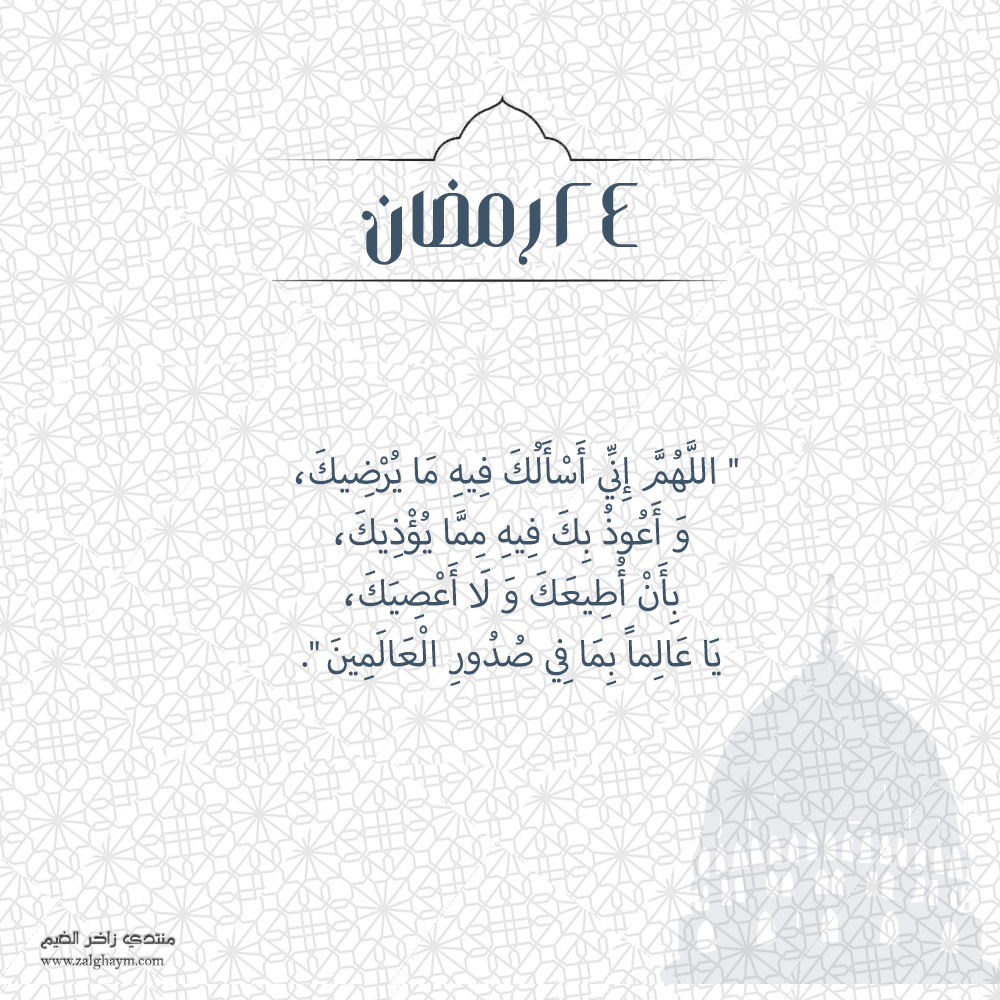 ٢٤ رمضان
" اللَّهُمَّ إِنِّي أَسْأَلُكَ فِيهِ مَا يُرْضِيكَ،
وَ أَعُوذُ بِكَ فِيهِ مِمَّا يُؤْذِيكَ،
بِأَنْ أُطِيعَكَ وَ لَا أَعْصِيَكَ،
يَا عَالِماً بِمَا فِي صُدُورِ الْعَالَمِينَ ".
منتدي زاخر الغيم
www.zalghaym.com